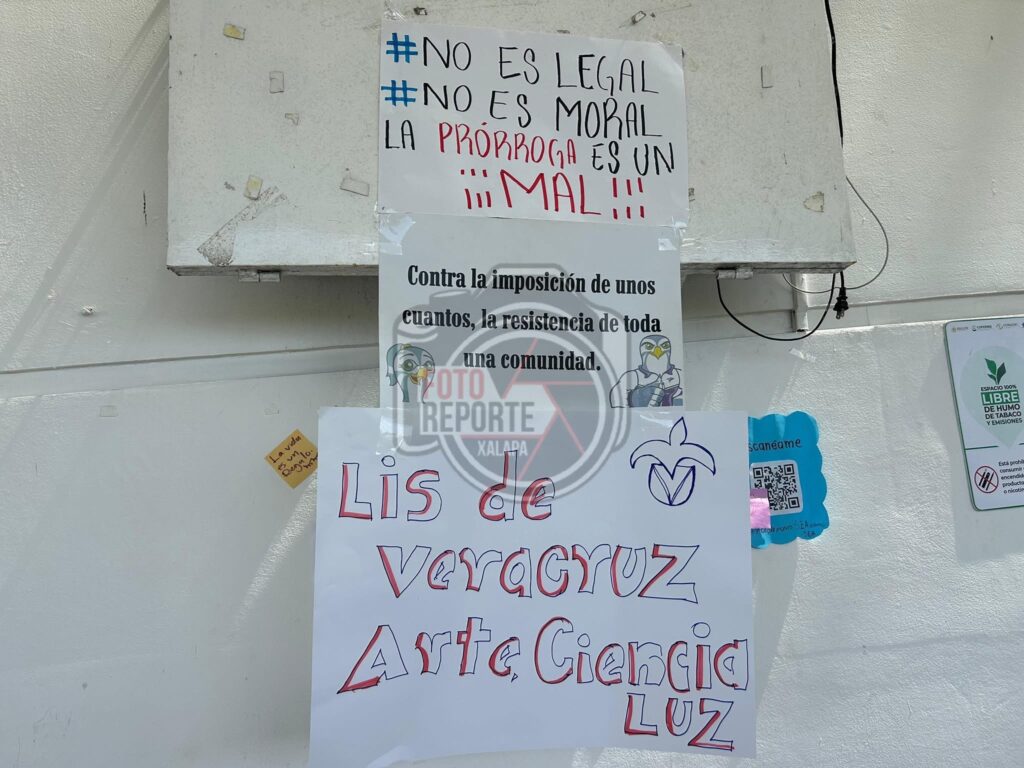 #NO ES LEGAL
#NO ES MORAL
LA PRÓRROGA ES UN
¡¡¡MAL!!!
Contra la imposición de unos
cuantos, la resistencia de toda
una comunidad.
FOTO
REPORTE
XALAPA
Lis de
Veracruz
Arte, Ciencia
LUZ
La vida
es un
Regalo
scanéame
ESPACIO 100%
LIBRE
DE HUMO
DE TABACO
Y EMISIONES
Está prohib
consumir
encender
producto
o nicotin